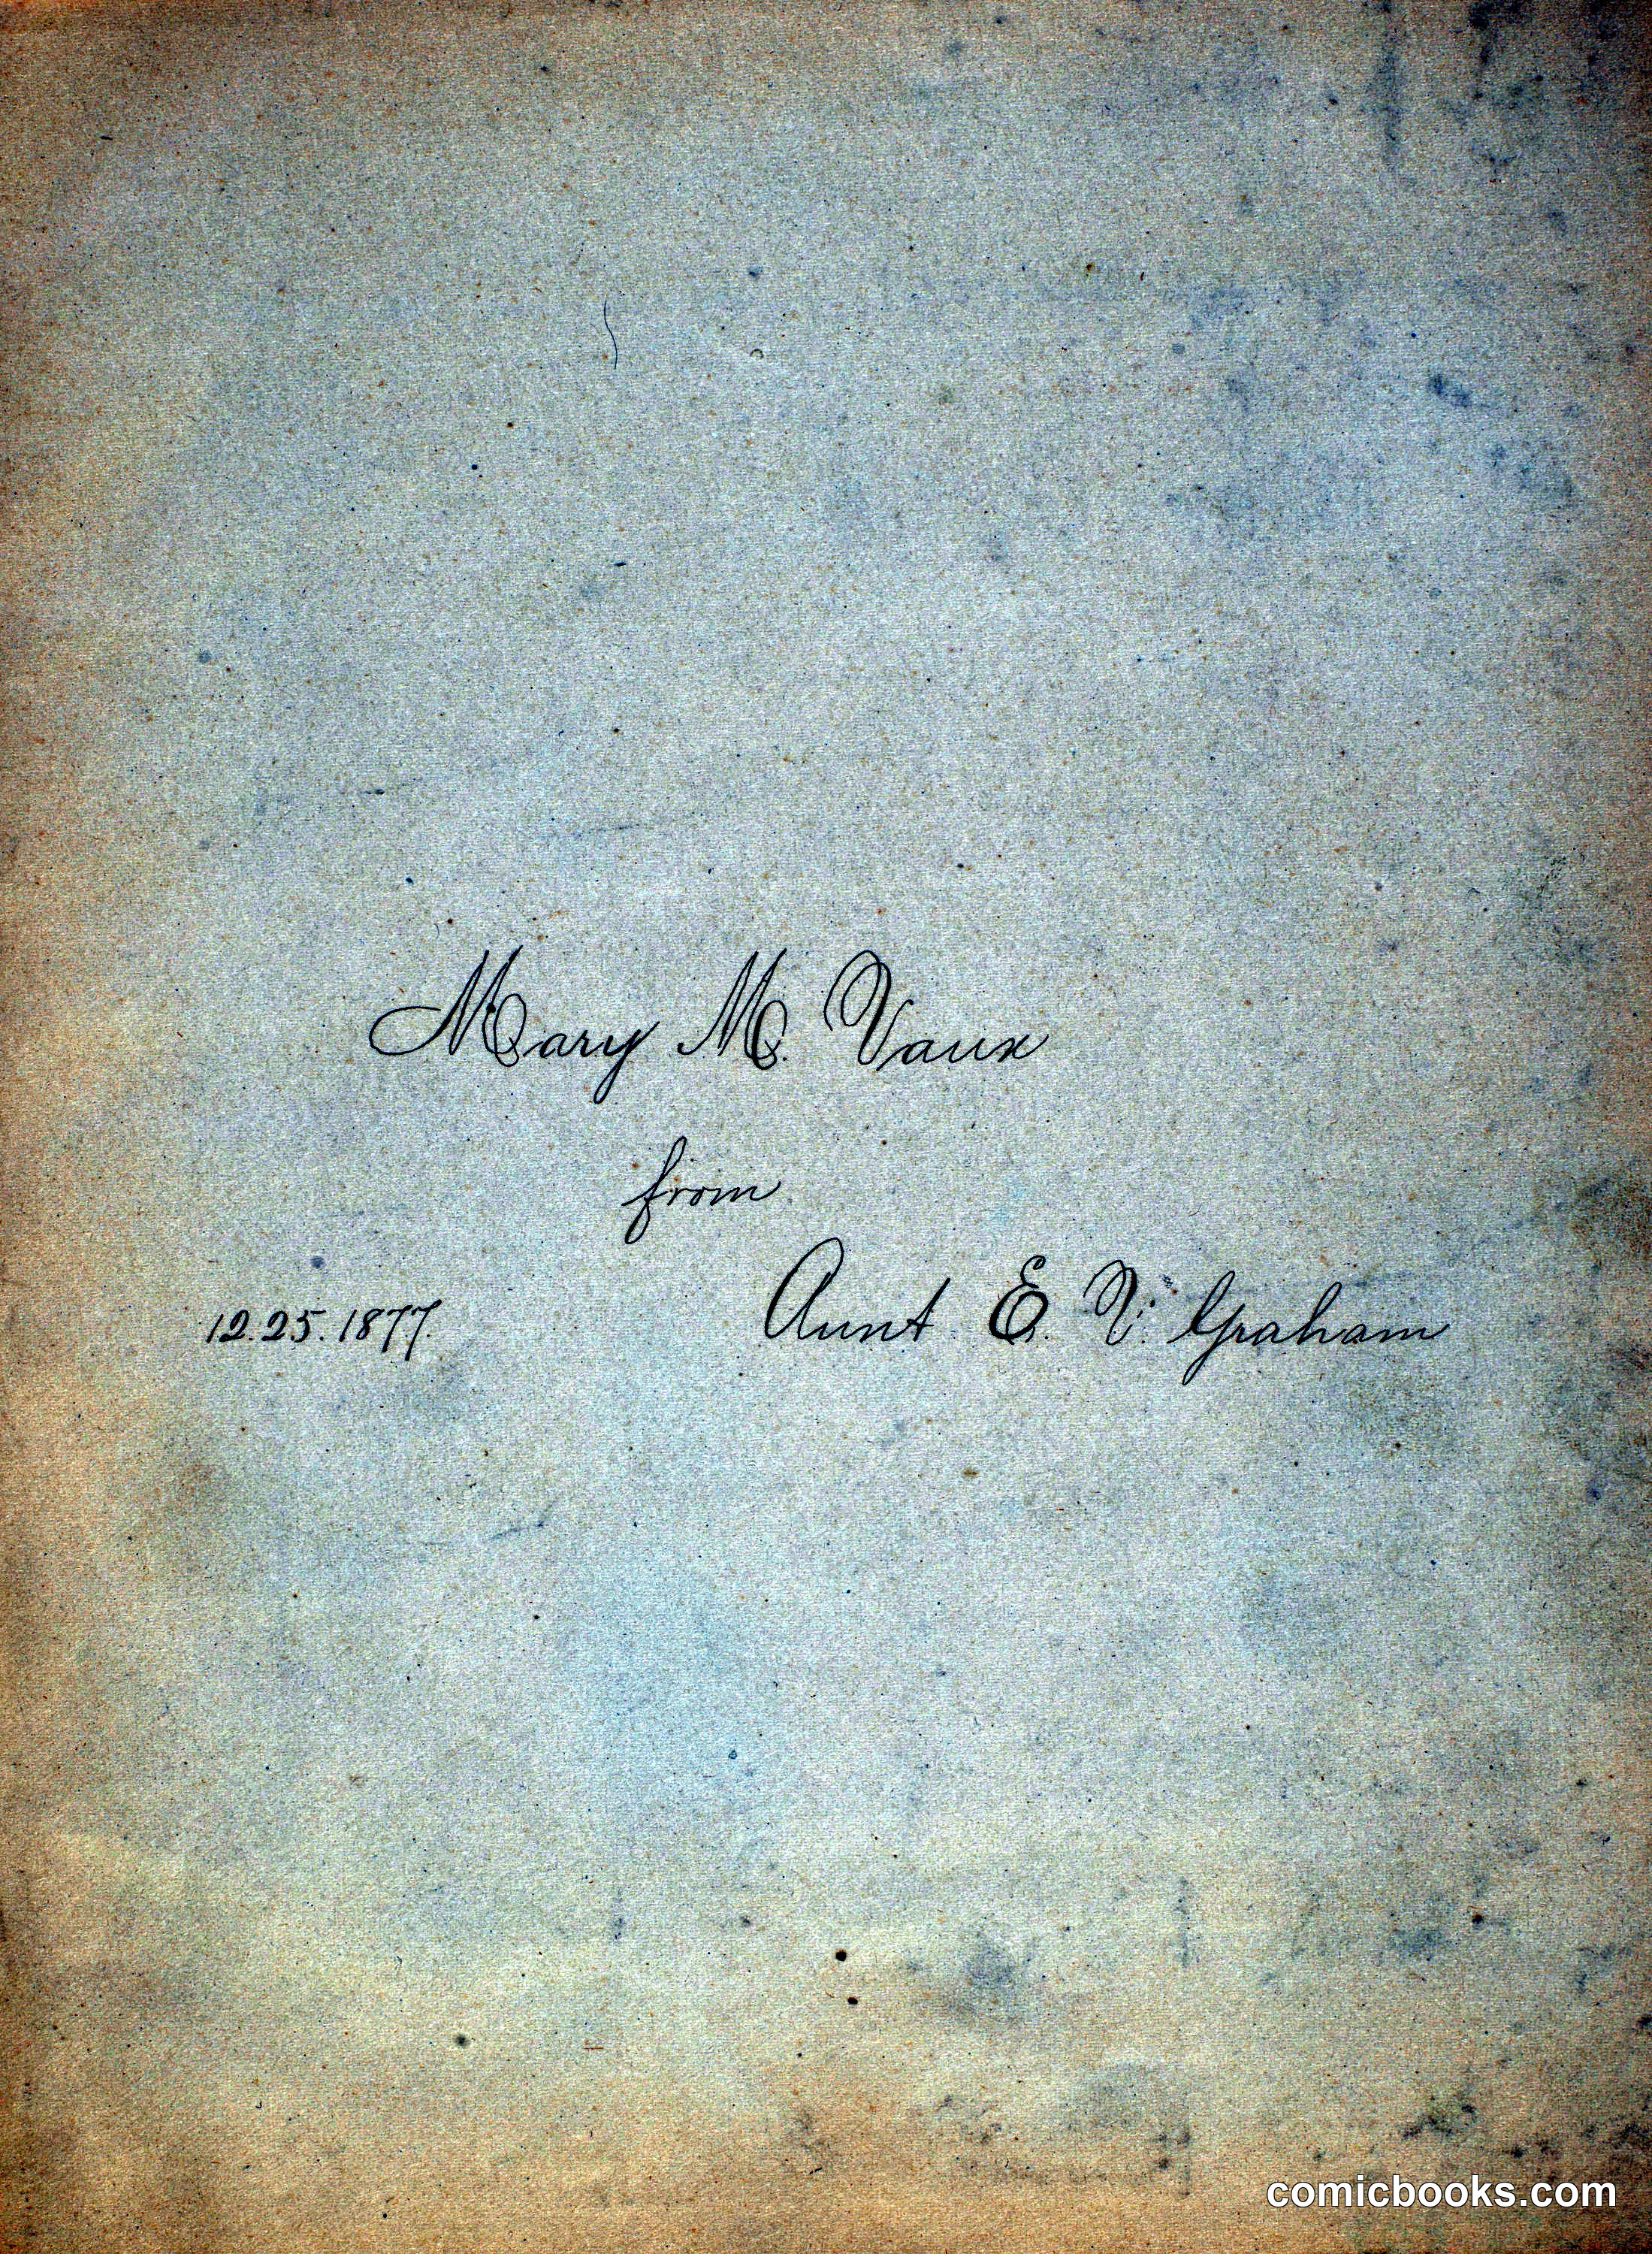 Mary M. Vaux
from
12.25.1877. Aunt E. V. Graham
comicbooks.com